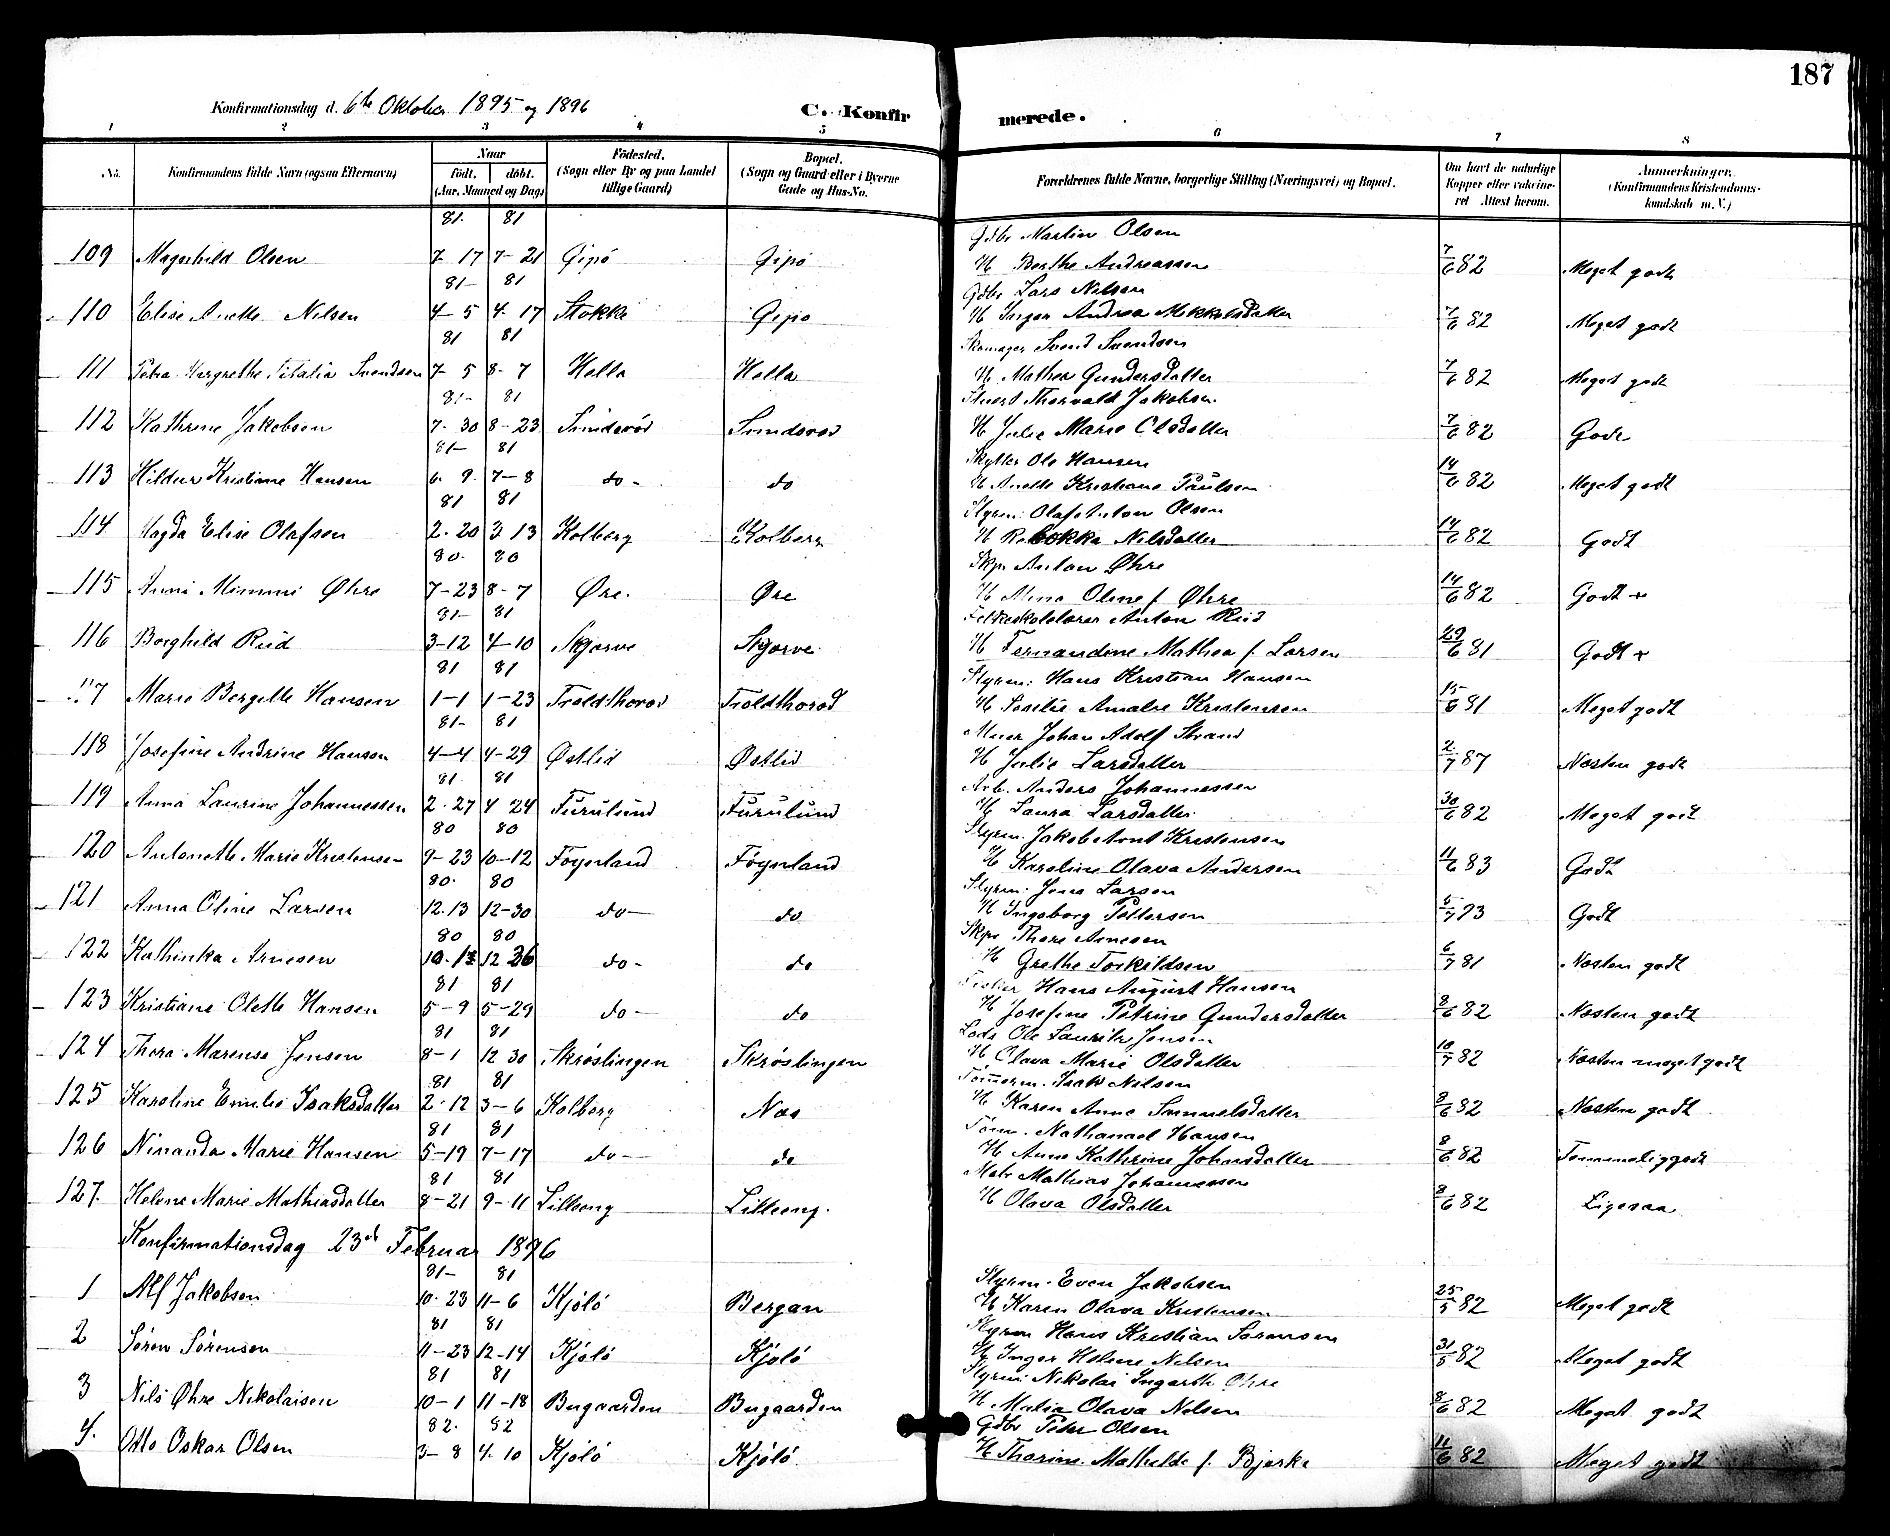 187
Konfirmationsdag d. 6te Oktober 1895 og 1896 C. Konfirmerede.
1 2 3 4 5 6 7 8
No. Konfirmandens fulde Navn (ogsaa Efternavn) Naar født. døbt. (Aar, Maaned og Dag) Födested. (Sogn eller By og paa Landet tillige Gaard) Bopæl. (Sogn og Gaard eller i Byerne Gade og Hus-No. Forældrenes fulde Navne, borgerlige Stilling (Næringsvei) og Bopæl. Om havt de naturlige Kopper eller vaccineret Attest herom. Anmærkninger. (Konfirmandens Kristendomskundskab m.V.)
81. 81 Gdbr Martin Olsen
109 Magnhild Olsen 7 17 7-21 Gipö Gipö H Berthe Andreassen 7/6 82 Meget godt
81- 81 Gdbr Lars Nilsen
110 Elise Anette Nilsen 4-5 4-17 Stokke Gipö H Inger Andrea Mikkelsdatter 7/6 82 Meget godt
81 81 Skomager Svend Svendsen
111 Petra Margrethe Titalia Svendsen 7-5 8-7 Hella Hella H Mathea Gundersdatter 7/6 82 Meget godt
81- 81 Stuert Thorvald Jakobsen
112 Kathrine Jakobsen 7-30 8-23 Smidsröd Smidsrød H Julie Marie Olsdatter 7/6 82 Godt
81- 81 Skytter Ole Hansen
113 Hildur Kristiane Hansen 6-9 7-8 do- do H Anette Kristiane Paulsen 14/6 82 Meget godt
81 81 Styrm. Olaf Anton Olsen
114 Magda Elise Olafsen 2-20 3 13 Kolberg Kolberg H Rebekka Nilsdatter 14/6 82 Godt
80. 80 Skpr Anton Øhre
115 Anna Mimmi Øhre 7-23 8-7 Øre. Øre H Alma Oline f. Øhre 14/6 82 Godt +
81- 81 Folkeskolelærer Anton Rud
116 Borghild Rud 3-12 4-10 Skjærve Skjærve H Fernandine Mathea f. Larsen 29/6 81 Godt +
81 81 Styrm: Hans Kristian Hansen
117 Marie Bergitte Hansen 1-1 1-23 Troldthorød Troldthorød H Sesilie Amalie Kristensen 15/6 81 Meget godt
81- 81 Murer Johan Adolf Strand
118 Josefine Andrine Hansen 4-4 4-29 Østlid Østlid H Julie Larsdatter 2/7 87 Næsten godt
81 81 Arb. Anders Johannessen
119 Anna Laurine Johannessen 2-27 4 24 Furulund Furulund H Laura Larsdatter 30/6 82 Meget godt
80 80 Styrm. Jakob Arnt Kristensen
120 Antonette Marie Kristensen 9-23 10-12 Föynland Föynland H Karoline Olava Andersen 11/6 83 Godt
80. 80 Styrm. Jens Larsen
121 Anna Oline Larsen 12.13 12-30 do- do H Ingeborg Pettersen 5/7 93 Godt
80 80 Skpr Thore Arnesen
122 Kathinka Arnesen 12 26 do- do H Grethe Torkildsen 6/7 81 Næsten godt
81 81 Fisker Hans August Hansen
123 Kristiane Olette Hansen 5-9 5-29 do- do H Josefine Petrine Gundersdatter 8/6 82 Næsten godt
81 81 Lods Ole Lauritz Jensen
124 Thora Marense Jensen 8-1 12 30 Skröslingen Skröslingen H Olava Marie Olsdatter 10/7 82 Næsten meget godt
81 81 Tömmerm. Isak Nilsen
125 Karoline Emilie Isaksdatter 2-12 3-6 Kolberg Næs H Karen Anne Samuelsdatter 8/6 82 Næsten godt
81 81 Tömm. Nathanael Hansen
126 Ninanda Marie Hansen 5-19 7-17 do- do H Anne Kathrine Johnsdatter 8/6 82 Temmelig godt
81 81 Matr Mathias Johannessen
127. Helene Marie Mathiasdatter 8-21 9-11 Lilleeng Lilleeng. H Olava Olsdatter 8/6 82 Ligesaa
Konfirmationsdag 23d Februar 1896
81- 81 Styrm. Even Jakobsen
1 Alf Jakobsen 10-23 11-6 Kjölö Bergan H Karen Olava Kristensen 25/5 82 Meget godt
81 81 Styrm Hans Kristian Sørensen
2 Sören Sörensen 11-23 12-14 Kjölö Kjölö H Inger Helene Nilsen 31/5 82 Meget godt
81 81 Styrm Nikolai Ingarth Øhre
3 Nils Øhre Nikolaisen 10-1 11-18 Bugaarden Bugaarden H Matia Olava Nilsen 8/6 82 Meget godt
82. 82 Gdbr Peter Olsen
4. Otto Oskar Olsen 3-8 4.10 Kjölö Kjölö H Thorine Mathilde f. Bjerke 11/6 82 Meget godt